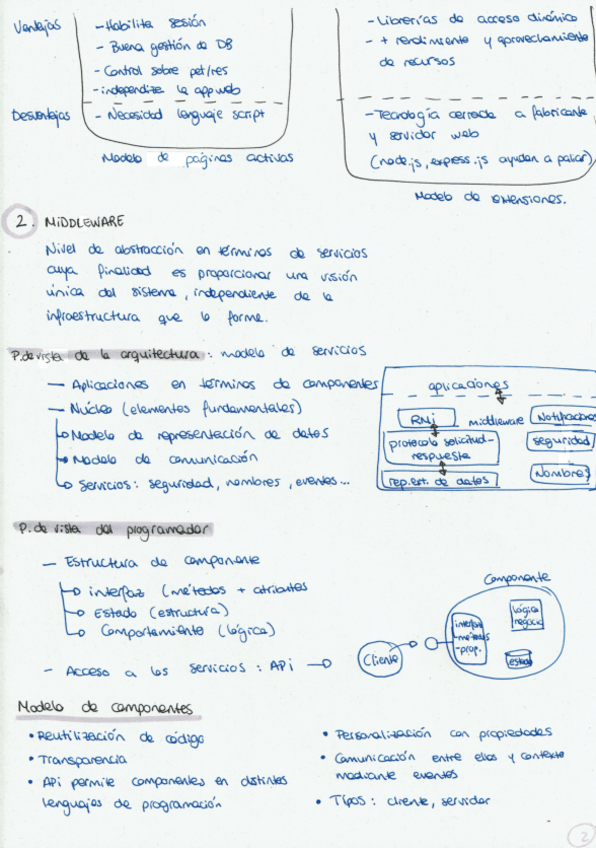 Ventajas
- Habilita sesión
- Buena gestión de DB
- Control sobre pet/res
- independize la app web
Desventajas
- Necesidad lenguaje script
Modelo de páginas activas
- Librerías de acceso dinámico
- + rendimiento y aprovechamiento
de recursos
- Tecnología cerrada a fabricante
y servidor web
(node.js, express.js ayudan a paliar)
Modelo de extensiones.
2. MiDDLEWARE
Nivel de abstracción en términos de servicios
cuya finalidad es proporcionar una visión
única del sistema, independiente de la
infraestructura que lo forme.
P. de vista de la arquitectura: modelo de servicios
— Aplicaciones en términos de componentes
— Núcleo (elementos fundamentales)
Modelo de representación de datos
Modelo de comunicación
Servicios: seguridad, nombres, eventos...
aplicaciones
RMi
middleware
Notificaciones
protocolo solicitud-
respuesta
seguridad
rep. est. de datos
Nombres
P. de vista del programador
— Estructura de componente
interfaz (métodos + atributos
Estado (estructura)
Comportamiento (lógica)
- Acceso a los servicios: APi
Cliente
Componente
interfaz
-métodos
-prop.
lógica
negocio
estado
Modelo de componentes
• Reutilización de código
• Transparencia
• APi permite componentes en distintos
lenguajes de programación
• Personalización con propiedades
• Comunicación entre ellos y contexto
mediante eventos
• Tipos: cliente, servidor
2